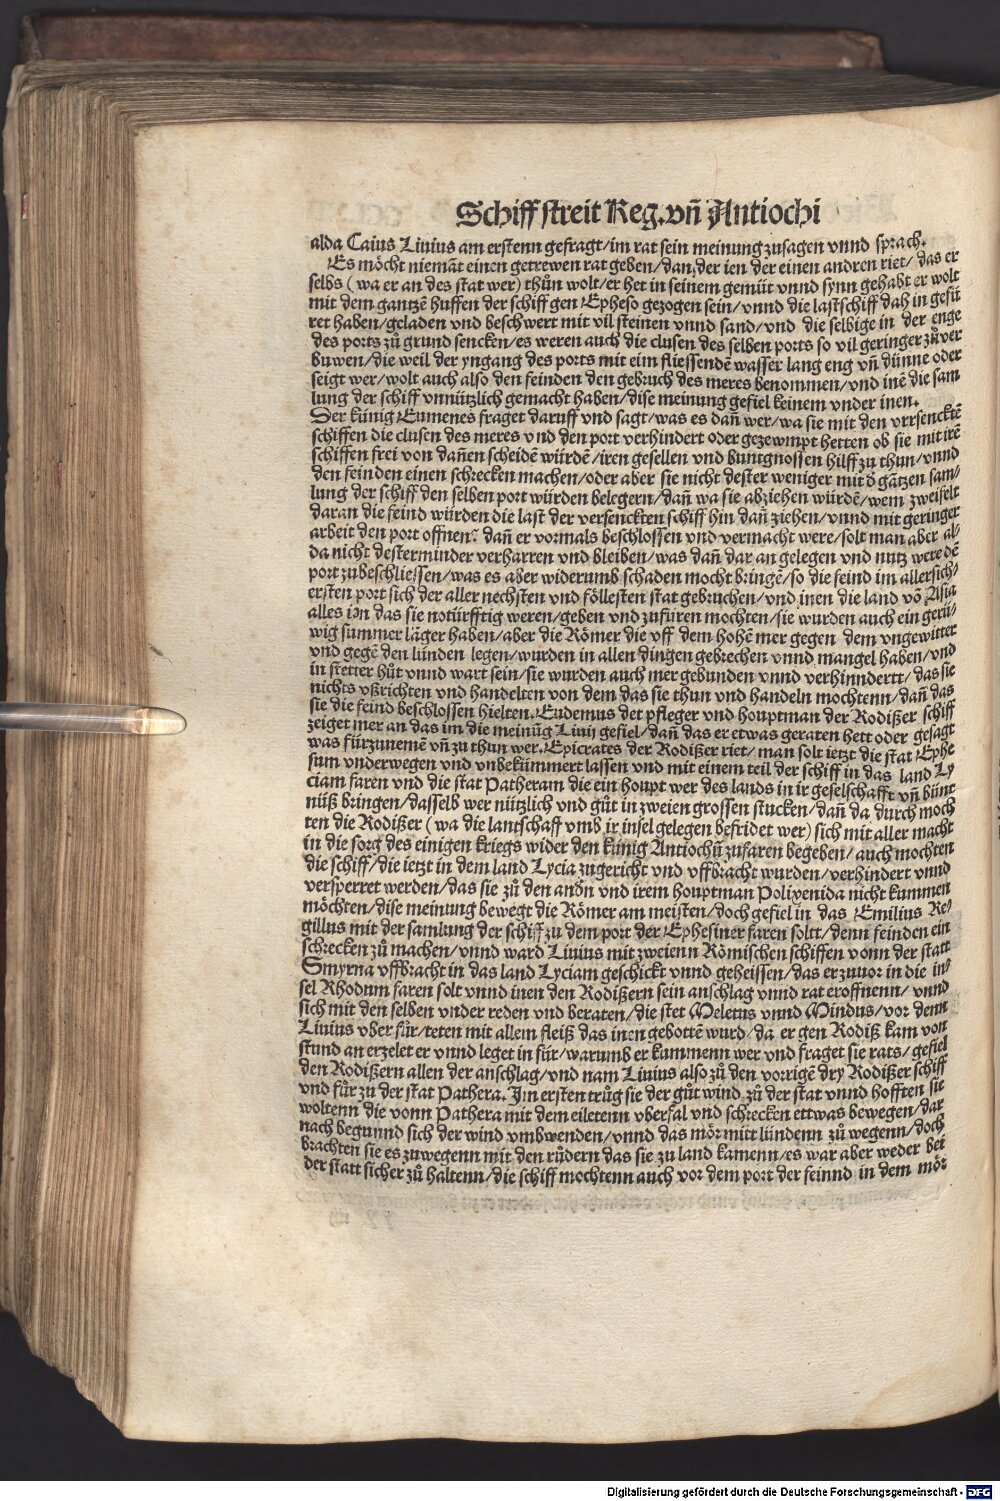 Schiff streit Reg. vñ Antiochi
alda Caius Liuius am erstenn gefragt/im rat sein meinung zusagen vnnd sprach.
Es möcht niemāt einen getrewen rat geben/dan der ien der einen andren riet/das er
selbs (wa er an des stat wer) thůn wolt/er het in seinem gemüt vnnd synn gehabt er wolt
mit dem gantzē huffen der schiff gen Epheso gezogen sein/vnnd die lastschiff dah in gefü
ret haben/geladen vnd beschwert mit vil steinen vnnd sand/vnd die selbige in der enge
des ports zů grund sencken/es weren auch die clusen des selben ports so vil geringer zůver
buwen/die weil der yngang des ports mit eim fliessendē wasser lang eng vñ dünne oder
seigt wer/wolt auch also den feinden den gebruch des meres benommen/vnd inē die sam
lung der schiff vnnützlich gemacht haben/dise meinung gefiel keinem vnder inen.
Der künig Eumenes fraget daruff vnd sagt/was es dañ wer/wa sie mit den vrrsencktē
schiffen die clusen des meres vnd den port verhindert oder gezewmpt hetten ob sie mit irē
schiffen frei von dañen scheidē würdē/iren gesellen vnd buntgnossen hilff zu thun/vnnd
den feinden einen schrecken machen/oder aber sie nicht dester weniger mit d̄ gātzen sam/
lung der schiff den selben port würden belegern/dañ wa sie abziehen würdē/wem zweifelt
daran die feind würden die last der versenckten schiff hin dañ ziehen/vnnd mit geringer
arbeit den port offnen? dañ er vormals beschlossen vnd vermacht were/solt man aber al/
da nicht desterminder verharren vnd bleiben/was dañ dar an gelegen vnd nutz were dē
port zubeschliessen/was es aber widerumb schaden mocht bringē/so die feind im allersich/
ersten port sich der aller nechsten vnd föllesten stat gebruchen/vnd inen die land vō Asia
alles ion das sie notürfftig weren/geben vnd zufüren mochten/sie wurden auch ein gerü/
wig summer läger haben/aber die Römer die vff dem hohē mer gegen dem vngewitter
vnd gegē den lünden legen/wurden in allen dingen gebrechen vnnd mangel haben/vnd
in stetter hůt vnnd wart sein/sie wurden auch mer gebunden vnnd verhinndertt/das sie
nichts vßrichten vnd handelten von dem das sie thun vnd handeln mochtenn/dañ das
sie die feind beschlossen hielten. Eudemus det pfleger vnd houptman der Rodißer schiff
zeiget mer an das im die meinūg Liuij gefiel/dañ das er etwas geraten hett oder gesagt
was fürzunemē vñ zu thun wer. Epicrates der Rodißer riet/man solt ietzt die stat Ephe
sum vnderwegen vnd vnbekümmert lassen vnd mit einem teil der schiff in das land Ly
ciam faren vnd die stat Patheram die ein houpt wer des lands in ir geselschafft vñ bünt
nüß bringen/dasselb wer nützlich vnd gůt in zweien grossen stucken/dañ da durch moch
ten die Rodißer (wa die lantschaft vmb ir insel gelegen befridet wer) sich mit aller macht
in die sorg des einigen kriegs wider den künig Antiochū zufaren begeben/auch mochten
die schiff/die ietzt in dem land Lycia zugericht vnd vffbracht wurden/verhindert vnnd
versperret werden/das sie zů den andn vnd irem houptman Polixenida nicht kummen
möchten/dise meinung bewegt die Römer am meisten/doch gefiel in das Emilius Re/
gillus mit der samlung der schiff zu dem port der Ephesiner faren soltt/denn feinden ein
schrecken zů machen/vnnd ward Liuius mit zweienn Römischen schiffen vonn der statt
Smyrna vffbracht in das land Lyciam geschickt vnnd geheissen/das er zuuor in die in/
sel Rhodum faren solt vnnd inen den Rodißern sein anschlag vnnd rat eroffnenn/vnnd
sich mit den selben vnder reden vnd beraten/die stet Meletus vnnd Mindus/vor denn
Liuius vber für/teten mit allem fleiß das inen gebottē wurd/da er gen Rodiß kam von
stund an erzelet er vnnd leget in für/warumb er kummenn wer vnd fraget sie rats/gefiel
den Rodißern allen der anschlag/vnd nam Liuius also zů den vorrigē dry Rodißer schiff
vnd für zu der stat Pathera. Im ersten trůg sie der gůt wind zů der stat vnnd hofften sie
woltenn die vonn Pathera mit dem eiletenn vberfal vnd schrecken ettwas bewegen/dar
nach begunnd sich der wind vmbwenden/vnnd das mör mitt lündenn zů wegenn/doch
brachten sie es zuwegenn mit den rüdern das sie zu land kamenn/es war aber weder bei
der statt sicher zů haltenn/die schiff mochtenn auch vor dem port der feinnd in dem mör
Digitalisierung gefördert durch die Deutsche Forschungsgemeinschaft - DFG